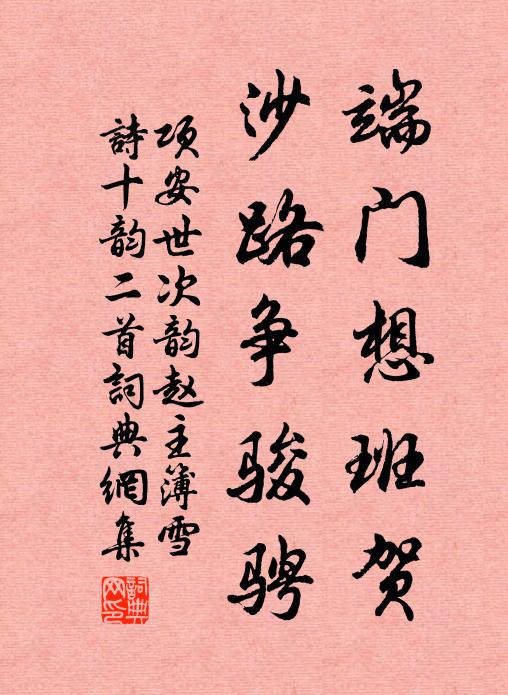 端门想班贺
沙路争骏骋
项安世次韵赵主簿雪
詩十韵二首詞典網集